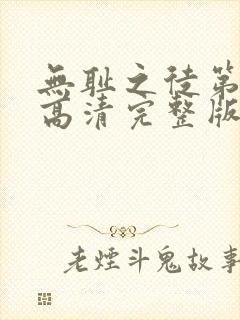 無耻之徒第
高清完整版
老煙斗鬼故事